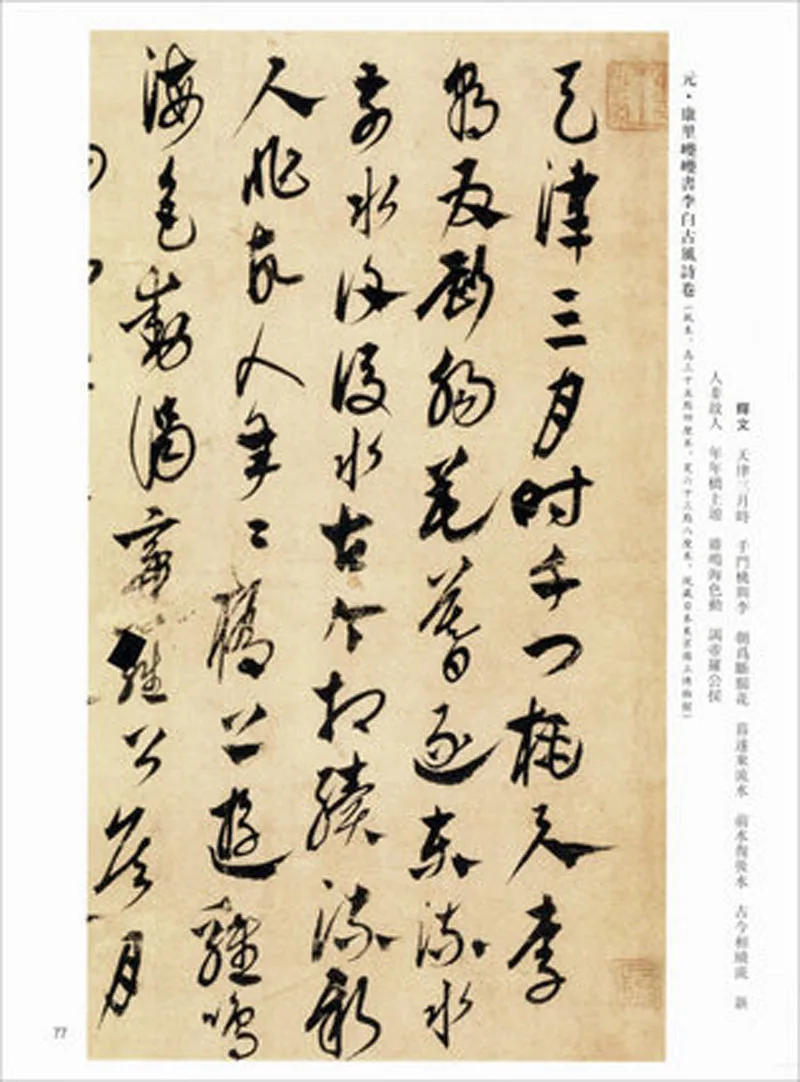 元·康里巎巎書李白古風詩卷(紙本,高三十五點四厘米,寬六十三點八厘米,現藏日本東京國立博物館)
釋文 天津三月時 千門桃與李 朝爲斷腸花 暮逐東流水 前水復後水 古今相續流 新
人非故人 年年橋上遊 雞鳴海色動 謁帝羅公侯
天津三月時千門桃與李
朝爲斷腸花暮逐東流水
前水復後水古今相續流新
人非故人年々橋上遊雞鳴
海色動謁帝羅公侯月
77